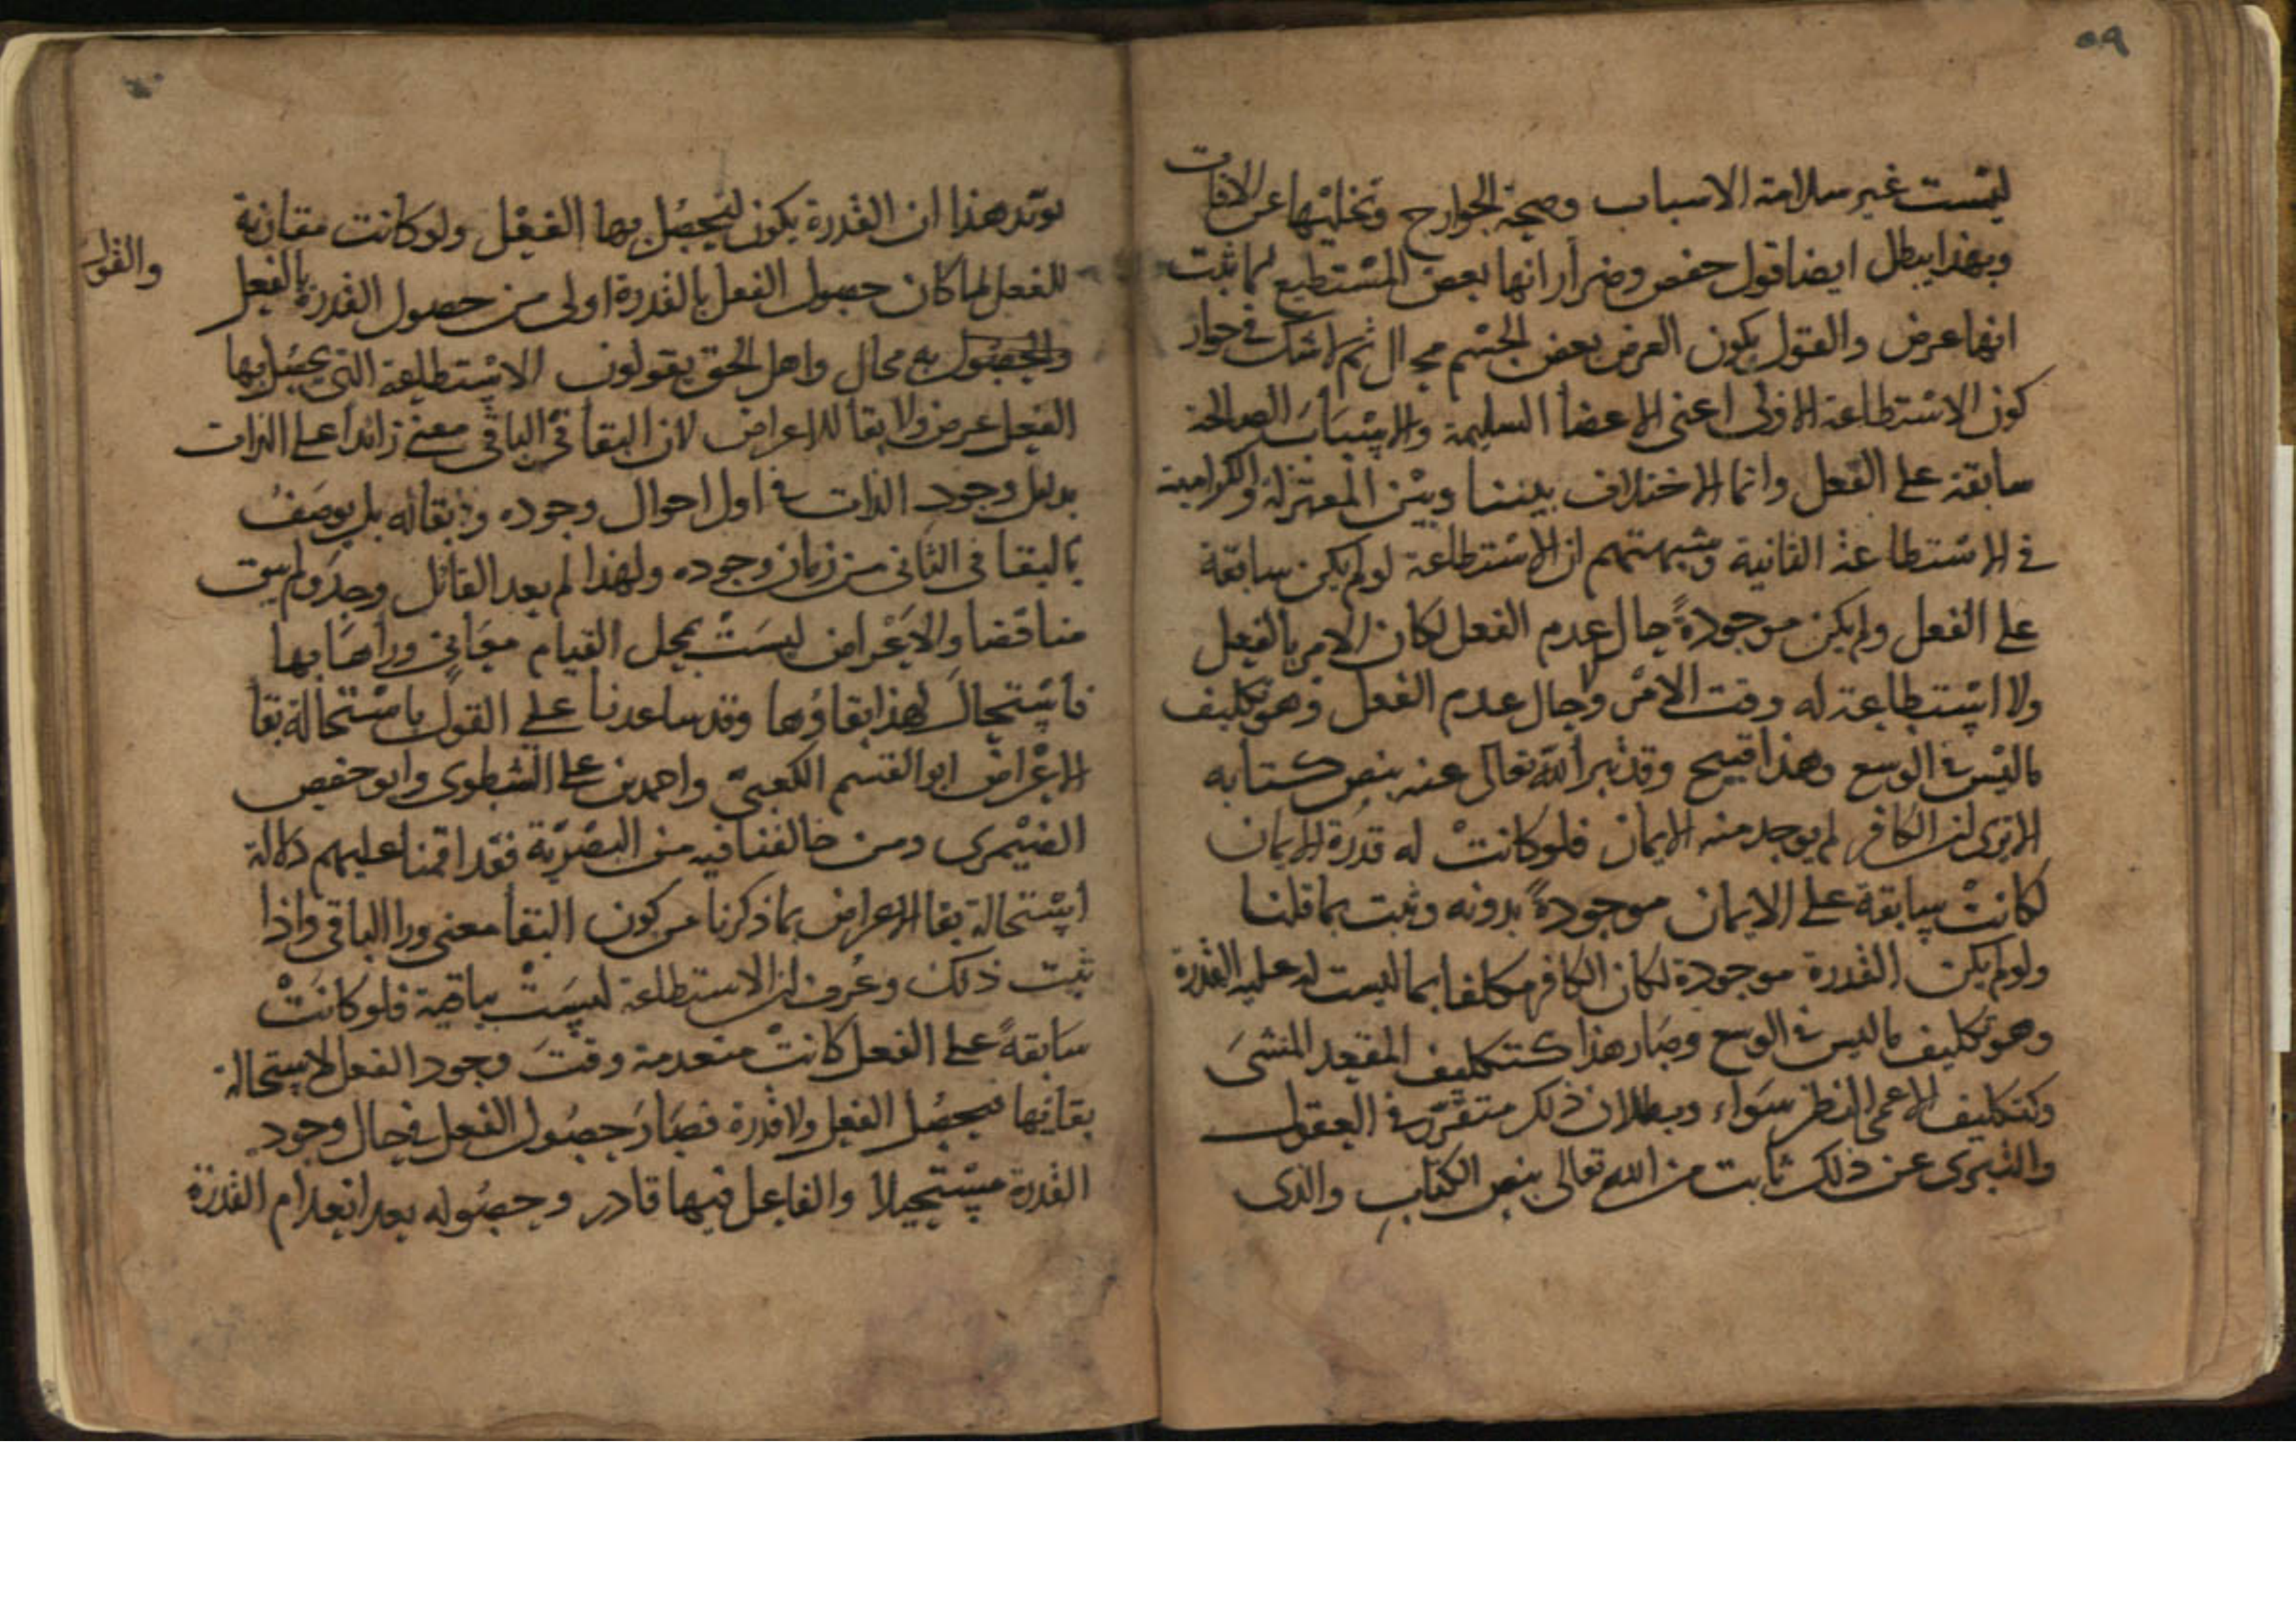 ٥٩
ليست غير سلامة الاسباب وصحة الجوارح وتخليها عن الافات
وبهذا يبطل ايضا قول حفص وضرار انها بعض المستطيع لما ثبت
انها عرض والقول بكون العرض بعض الجسم محال ثم لا شك في جواز
كون الاستطاعة الاولى اعنى الاعضا السليمة والاسباب الصالحة
سابقة على الفعل وانما الاختلاف بيننا وبين المعتزلة والكرامية
في الاستطاعة الثانية وشبهتهم ان الاستطاعة لو لم يكن سابقة
على الفعل ولم يكن موجودة حال عدم الفعل لكان الامر بالفعل
ولا استطاعة له وقت الامر وحال عدم الفعل وهو تكليف
ما ليس في الوسع وهذا قبيح وقد تبرا الله تعالى عنه بنص كتابه
الا ترى ان الكافر لم يوجد منه الايمان فلو كانت له قدرة الايمان
لكانت سابقة على الايمان موجودة بدونه وثبت ما قلنا
ولو لم يكن القدرة موجودة لكان الكافر مكلفا بما ليست له عليه القدرة
وهو تكليف ما ليس في الوسع وصار هذا كتكليف المقعد المشى
وكتكليف الاعمى النظر سواء وبطلان ذلك متقرر في العقول
والتبرى عن ذلك ثابت من الله تعالى بنص الكتاب والذى
يؤيد هذا ان القدرة يكون ليحصل بها الفعل ولو كانت مقارنة
للفعل لما كان حصول الفعل بالقدرة اولى من حصول القدرة بالفعل
والقول
والحصول به محال واهل الحق يقولون الاستطاعة التى يحصل بها
الفعل عرض ولا بقا للاعراض لان البقا في الباقى معنى زائدا على الذات
بدليل وجود الذات في اول احوال وجوده ولا بقا له بل يوصف
بالبقا في الثانى من زمان وجوده ولهذا لم يعد القائل وجد ولم يبق
مناقضا والاعراض ليست بمحل القيام معانى وراها بها
فاستحال لهذا بقاؤها وقد ساعدنا على القول باستحالة بقا
الاعراض ابو القسم الكعبى واحمد بن على الشطوى وابو حفص
الصيمرى ومن خالفنا فيه من البصرية فقد اقمنا عليهم دلالة
استحالة بقا الاعراض بما ذكرنا من كون البقا معنى ورا الباقى واذا
ثبت ذلك وعرف ان الاستطاعة ليست بباقية فلو كانت
سابقة على الفعل كانت منعدمة وقت وجود الفعل لاستحالة
بقائها فيحصل الفعل ولا قدرة فصار حصول الفعل في حال وجود
القدرة مستحيلا والفاعل فيها قادر وحصوله بعد انعدام القدرة